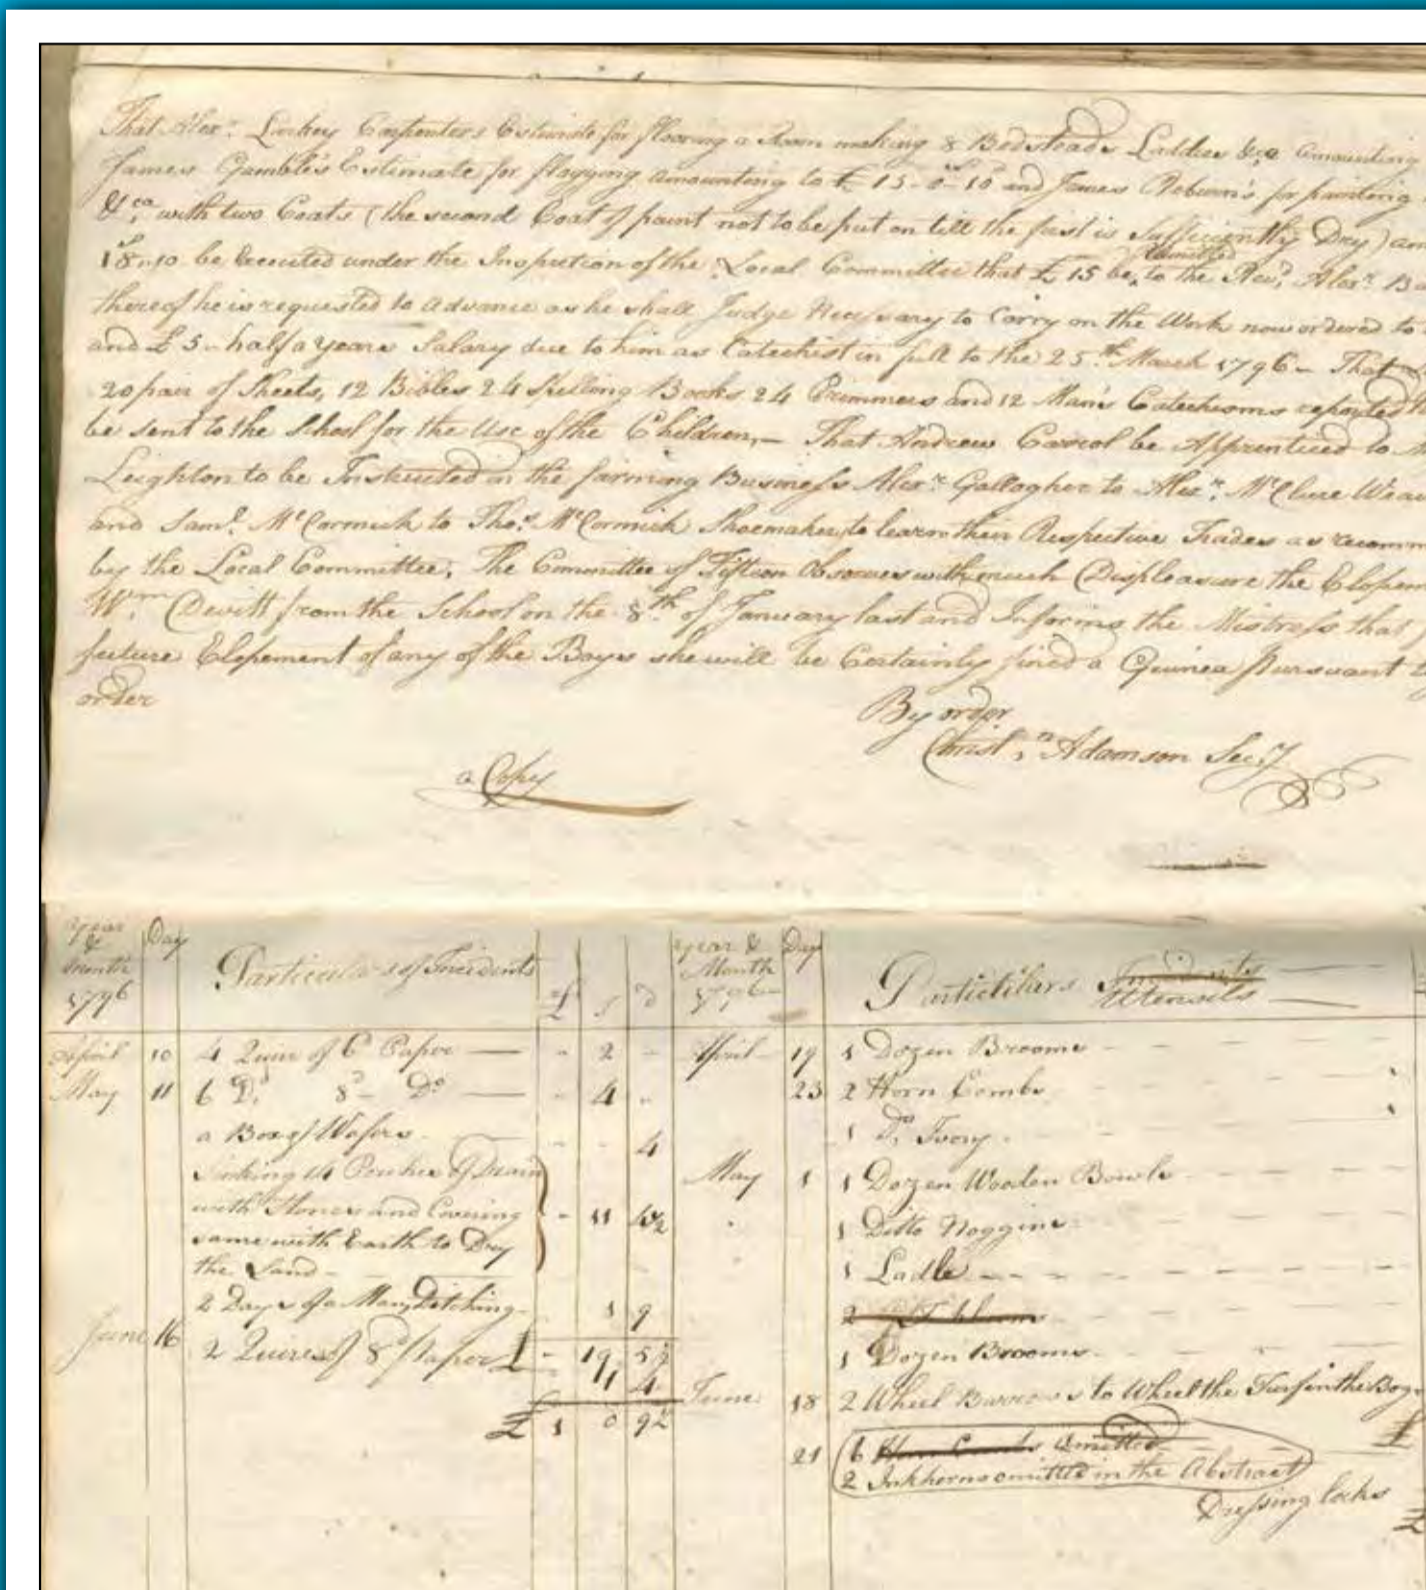 That Alexr. Luckey Carpenters Estimate for flooring a Room making 8 Bedsteads Ladder &ca amounting
James Gamble's Estimate for flagging amounting to £ 15-0-10 and James Reburn's for painting
&ca with two Coats (the second Coat of paint not to be put on till the first is sufficiently Dry) an
18-10 be Executed under the Inspection of the Local Committee that £ 15 be remitted to the Revd. Alexr. Ba
thereof he is requested to advance as he shall Judge Necessary to Carry on the Work now ordered to
and £ 5 - half a years Salary due to him as Catechist in full to the 25th March 1796 - That
20 pair of Sheets, 12 Bibles 24 Spelling Books 24 Primmers and 12 Mann's Catechisms reported
be sent to the School for the Use of the Children, - That Andrew Carrol be Apprenticed to
Leighton to be Instructed in the farming Business Alexr. Gallagher to Alexr. McClure Weav
and Saml. McCormick to Thos. McCormick Shoemaker, to learn their Respective Trades as recomm
by the Local Committee, The Committee of Fifteen Observes with much Displeasure the Elopem
Wm. Devitt from the School on the 8th of January last and Informs the Mistress that
future Elopement of any of the Boys she will be Certainly fined a Guinea Pursuant
order
By order
Christr. Adamson Secy.
a Copy
Year & Month 1796 Day Particulars of Incidents £ s d
April 10 4 Quire of 6d Paper — - 2 -
May 11 6 Do. 8d - Do — - 4 -
a Box of Wafers - - 4
Sinking 14 Perches of Drain
with Stones and Covering - 11 4½
same with Earth to Dry
the Land -
2 Days of a Man Ditching - 1 9
- 19 5½
June 16 2 Quires of 8d paper 1 4
£ 1 0 9½
Year & Month 1796 Day Particulars Incidents
Utensils
April 19 1 Dozen Brooms
23 2 Horn Combs
1 Do. Ivory
May 1 1 Dozen Wooden Bowls
1 Ditto Noggins
1 Ladle
1 Dozen Brooms
June 18 2 Wheel Barrows to Wheel the Turf in the Bog
21 6 Horn Combs Omitted
2 Inkhorns omitted in the Abstract
Dressing locks